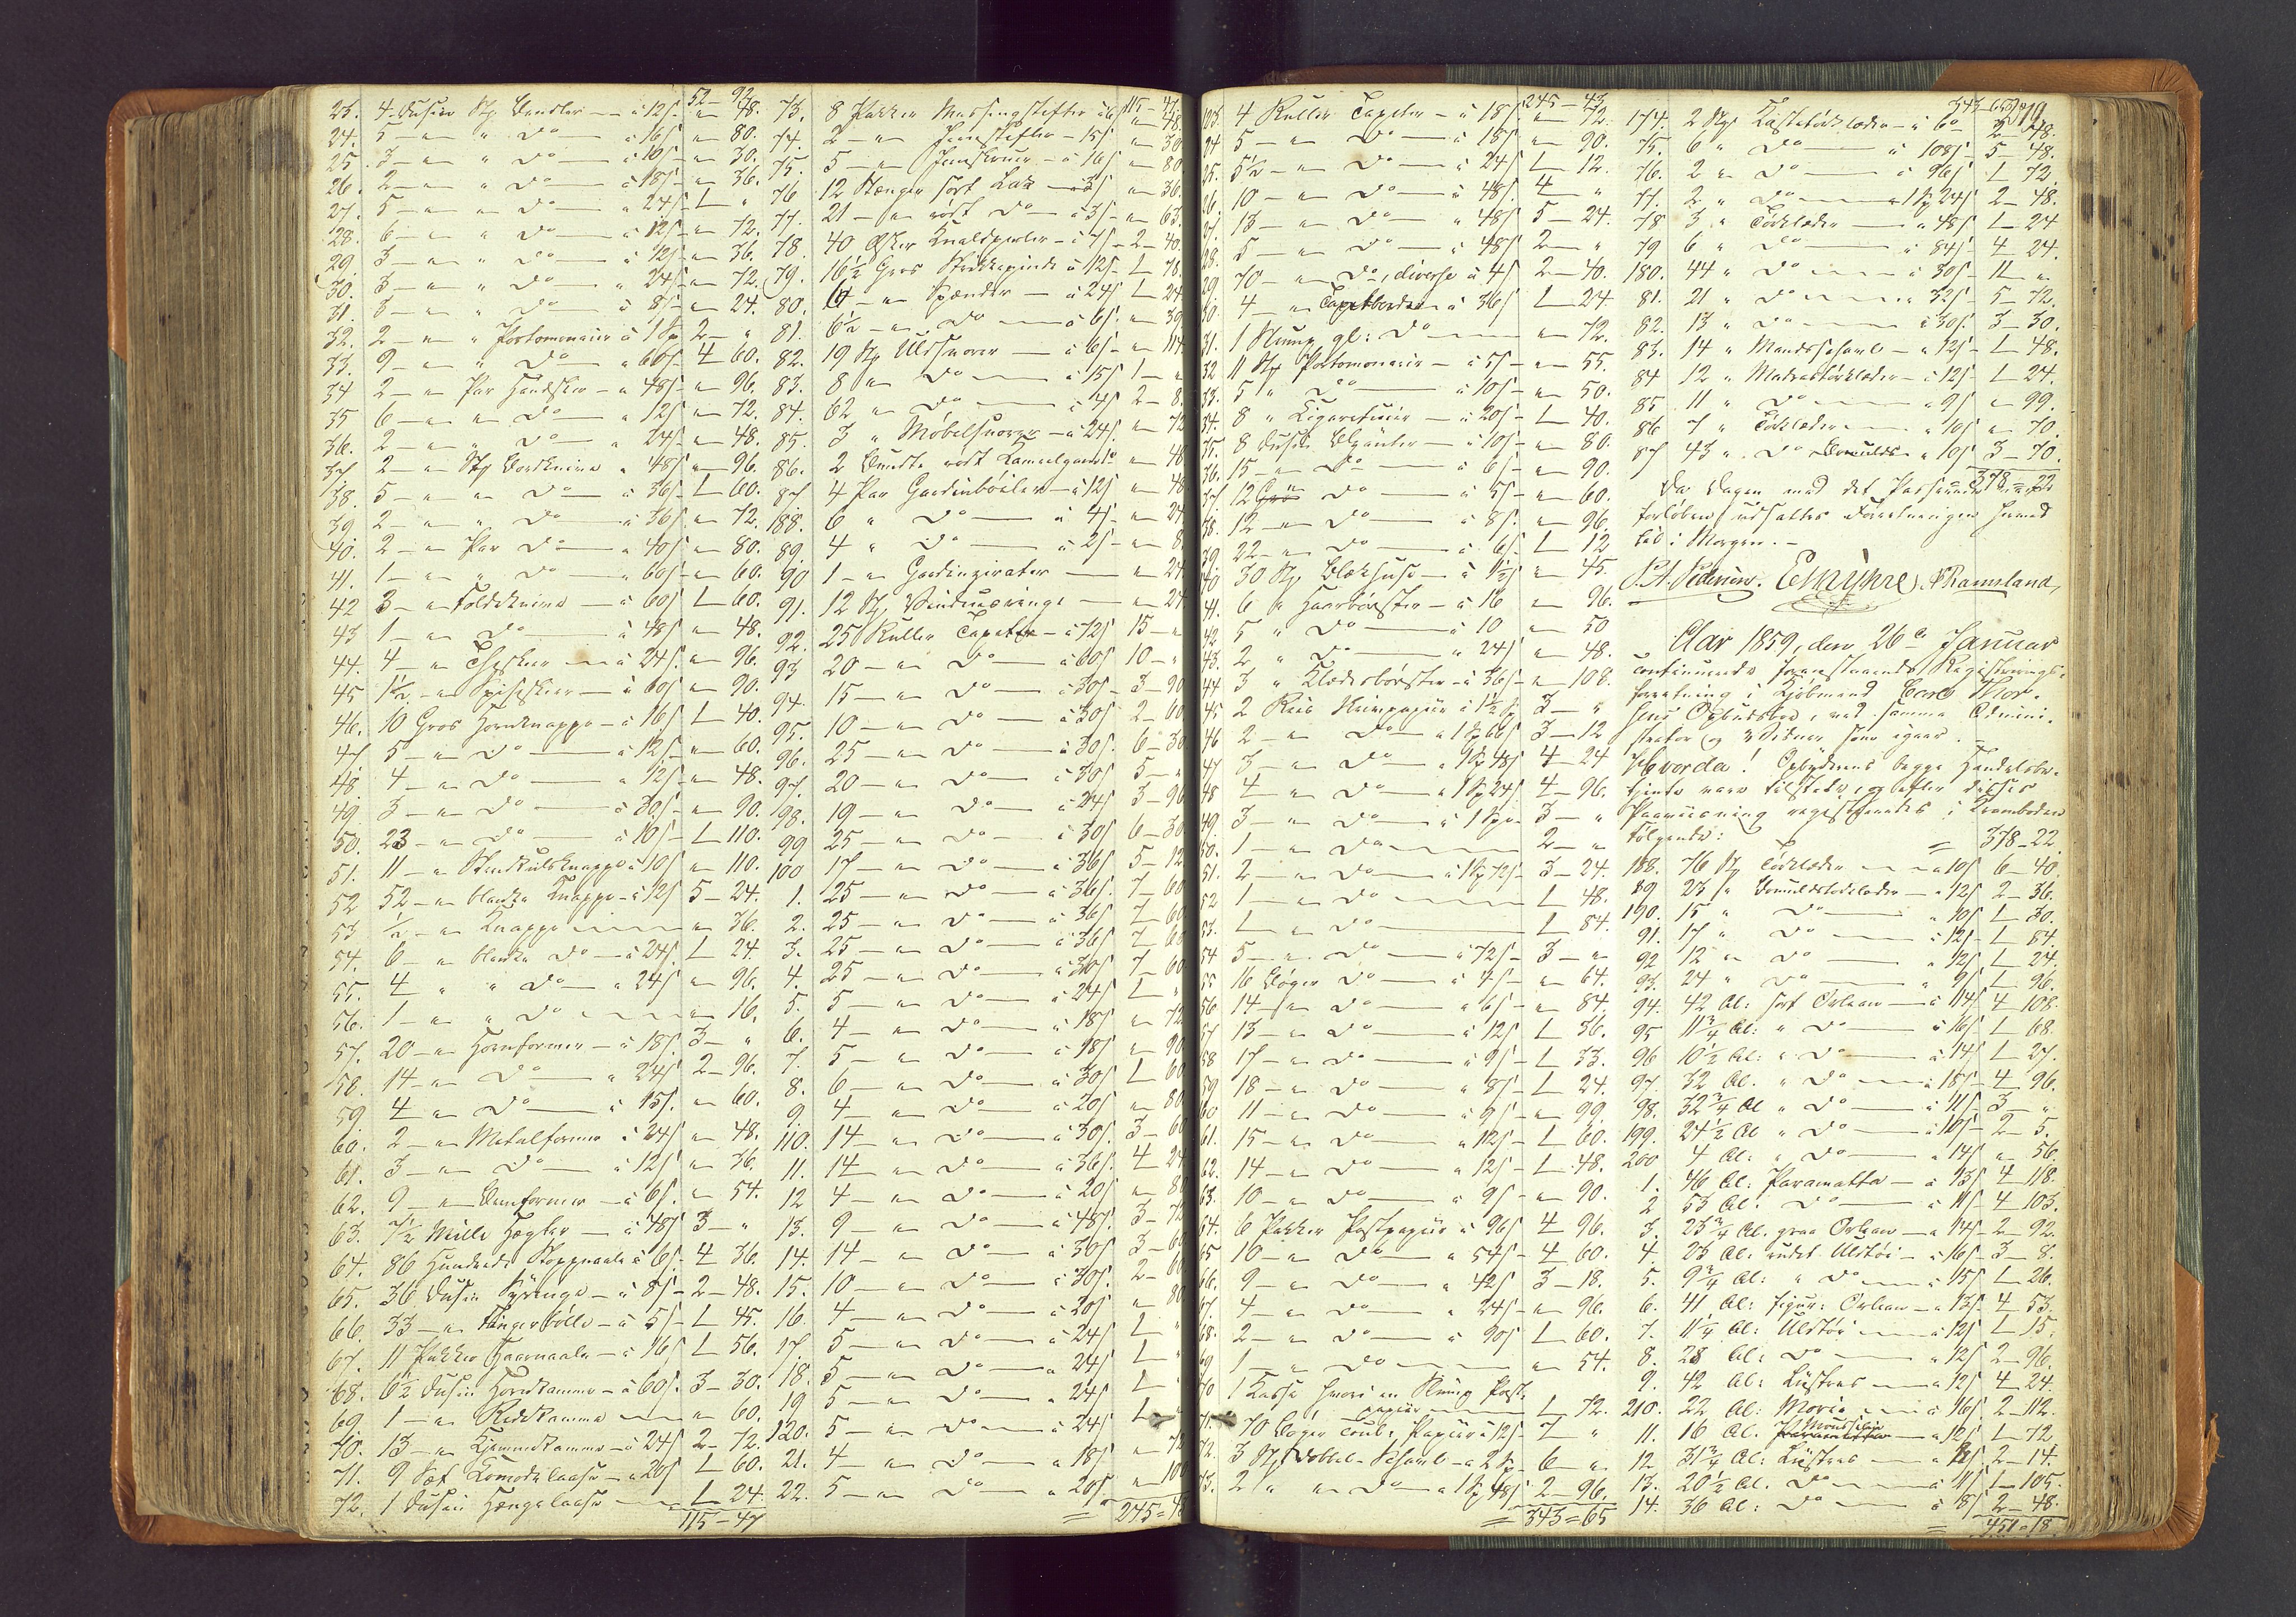 52 – 92
23. 4 Dusin St. Bændler — à 12 s – „ 48.
24. 5 — „ „ Do — à 16 s – „ 80.
25. 3 — „ „ Do — à 10 s – „ 30.
26. 2 — „ „ Do — à 18 s – „ 36.
27. 5 — „ „ Do — „ 24 s – 1 „
28. 6 — „ „ Do — à 12 s – „ 72.
29. 3 — „ „ Do — à 12 s – „ 36.
30. 3 — „ „ Do — „ 24 s – „ 72.
31. 3 — „ „ Do — à 8 s – „ 24.
32. 2 — „ „ Portomonaier à 1 Sp 2 – „
33. 9 — „ „ Do — „ 60 s – 4 60.
34 2 — „ Par Handsker — „ 48 s – „ 96.
35 6 — „ „ Do — „ 12 s – „ 72.
36. 2 — „ „ Do — „ 24 s – „ 48.
37. 2 — „ St. Bordknive „ 48 s – „ 96.
38. 5 — „ „ Do — à 36 s – 1 60.
39 2 — „ „ Do — à 36 s – „ 72.
40. 2 — „ Par Do — „ 40 s – „ 80.
41. 1 — „ „ Do — „ 60 s – „ 60.
42 3 — „ Foldeknive — à 60 s 1 60.
43 1 — „ Do — à 48 s „ 48.
44. 4 — „ Theskeer — à 24 s „ 96.
45 1½ — „ Spiseskeer — à 60 s „ 90.
46. 10 Gros Hornknappe — à 16 s 1 40.
47 5 — „ Do — à 12 s – „ 60.
48. 4 — „ Do — „ 12 s – „ 48.
49. 3 — „ Do — à 30 s – „ 90.
50. 23 — „ Do — à 10 s – 1 110.
51. 11 — „ Steenkulsknappe à 10 s „ 110.
52 52 — „ blanke Knappe – à 12 s 5 – 24.
53 ½ — „ Knappe — „ 36.
54. 6 — „ blanke Do — à 24 s 1 24.
55. 4 „ „ Do — „ 24 s „ 96.
56. 1 — „ „ Do — „ 16.
57. 20 — „ Hornformer — à 18 s 3 – „
58. 14 — „ Do — „ 24 s 2 – 96.
59. 4 — „ Do — à 15 s „ 60.
60. 2 — „ Metalformer à 24 s „ 48.
61. 3 — „ Do — à 12 s „ 36.
62. 9 — „ Beenformer — à 6 s „ 54.
63. 7½ Mille Hægter — à 48 s 3 – „
64. 86 Hundrede Stoppenaale à 6 s 4 36.
65. 36 Dusin Syringe — à 8 s – 2 – 48.
66. 33 — „ Fingerbølle — à 5 s – 1 45.
67. 11 Pakker Haarnaale — à 16 s 1 56.
68. 6½ Dusin Hornkamme — à 60 s 3 – 30.
69. 1 — „ Redekamme — „ 60.
70. 13 — „ Kjemmekamme — à 24 s 2 – 72.
71. 9 Sæt Komodelaase — „ 20 s 1 60.
72. 1 Dusin Hængelaase — 1 24.
115 – 47
115 – 47.
73. 8 Pakker Messingstifter à 6 s „ 48.
74. 2 — „ Jernstifter – 15 s „ 30
75. 5 — „ Jernskruer — à 16 s „ 80
76 12 Stænger sort Lak — 3 s „ 36.
77. 21 — „ rødt Do — à 3 s – „ 63.
78. 40 Æsker Knaldperler — à 4 s – 2 – 40.
79. 16½ Gros Strikkepinde à 12 s – 1 78.
80. 4 — „ Spænder — à 24 s 1 24
81. 6½ — „ Do — à 6 s – „ 39
82. 19 St. Uldsnorer — à 6 s – „ 114.
83. 8 „ Do — à 15 s 1 – „
84. 62 „ Do — à 4 s 2 – 8.
85. 3 „ Møbelsnorer — à 24 s „ 72
86. 2 Bundter rødt Kameelgarn „ 48
87 4 Par Gardinbøiler — à 12 s „ 48
188. 6 „ Do — à 4 s – „ 24.
89. 4 „ Do — à 2 s – „ 8.
90 1 — „ Gardinzirater — „ 24.
91. 12 St. Vinduesringe — „ 24
92. 25 Ruller Tapeter — à 72 s 15 – „
93 20 — „ Do — à 60 s 10 – „
94. 15 — „ Do — à 30 s – 3 – 90
95. 10 — „ Do — à 30 s 2 – 60
96. 25 — „ Do — à 30 s 6 – 30
97. 20 — „ Do — à 30 s 5 – „
98. 19 — „ Do — à 24 s 3 – 96
99 25 — „ Do — à 30 s 6 – 30
100 17 — „ Do — à 36 s 5 – 12
1. 25 — „ Do — à 36 s 7 – 60
2. 25 — „ Do — à 36 s 7 – 60
3. 25 — „ Do — à 36 s 7 – 60
4. 25 — „ Do — à 36 s 7 – 60
5. 5 — „ Do — à 24 s 1 „
6. 4 — „ Do — à 18 s „ 72
7. 5 — „ Do — à 18 s „ 90
8. 6 — „ Do — à 30 s 1 60
9. 4 — „ Do — à 20 s „ 80
110. 14 — „ Do — à 30 s 3 – 60
11. 14 — „ Do — à 36 s 4 24
12 4 — „ Do — à 20 s „ 80
13. 9 — „ Do — à 48 s 3 – 72
14. 14 — „ Do — à 30 s 3 – 60
15. 10 — „ Do — à 30 s 2 – 60
16. 4 — „ Do — à 20 s „ 80
17. 5 — „ Do — à 24 s 1 „
18. 5 — „ Do — „ 24 s 1 „
19 5 — „ Do — „ 24 s 1 „
120. 5 — „ Do — à 24 s 1 „
21. 4 — „ Do — „ 18 s „ 72
22. 5 — „ Do — „ 20 s „ 100
245 = 43
245 – 43
123. 4 Ruller Tapeter — à 18 s „ 72.
24 5 — „ Do — à 18 s „ 90.
25. 5½ — „ Do — à 24 s 1 12.
26. 10 — „ Do — à 48 s 4 „
27. 13 — „ Do — „ 48 s 5 – 24.
28. 5 — „ Do — à 48 s 2 – „
29 70 — „ Do, diverse à 4 s 2 – 40.
30. 4 — „ Tapetborder à 36 s 1 – 24.
31. 1 Slump gl: Do — „ 72.
32 11 St. Portomonaier — à 5 s – „ 55.
33. 5 „ Do — à 10 s – „ 50.
34. 8 „ Cigarfuteraler — à 20 s – 1 40.
35. 8 Dusin Blyanter — à 10 s – „ 80.
36. 15 — „ Do — à 6 s – „ 90.
37 12 — Do — à 5 s – „ 60.
38. 12 — „ Do — à 8 s „ 96.
39. 22 — „ Do — à 6 s – 1 12
140 30 St. Blækhuse — à 1½ s „ 45.
41. 6 „ Haarbørster — à 16 „ 96.
42. 5 „ Do — à 10 „ 50
43. 2 „ Do — „ 24 s „ 48.
44 3 „ Klædebørster — à 36 s „ 108.
45 2 Riis Skrivpapiir à 1½ Sp 3 – „
46 2 — „ Do — à 1 Sp 66 s 3 – 12
47 3 — „ Do — à 1 Sp 48 s 4 – 24
48 4 — „ Do — à 1 Sp 24 s 4 – 96.
49. 3 — „ Do — à 1 Sp – 3 – „
50. 1 — „ Do — 2 – „
51. 2 — „ Do — à 1 Sp 72 s – 3 – 24.
52 1 — „ Do — 1 48.
53. 1 — „ Do — 1 84.
54 5 — „ Do — à 72 s – 3 – „
55 16 Bøger Do — à 4 s – „ 64.
56 14 — „ Do — „ 6 s – „ 84.
57 13 — „ Do — à 12 s 1 36.
58 17 — „ Do — à 9 s – 1 33.
59 18 — „ Do — „ 8 s – 1 24.
60 11 — „ Do — à 9 s – „ 99.
61. 15 — „ Do — à 12 s – 1 60.
62. 14 — „ Do — „ 12 s – 1 48.
63. 10 — „ Do — à 9 s – „ 90.
64. 6 Pakker Postpapiir à 96 s 4 96.
65 10 — „ Do — „ 54 s – 4 60.
66. 9 — „ Do — „ 42 s 3 – 18.
67. 4 — „ Do — „ 24 s – „ 96.
68. 2 — „ Do — à 90 s 1 60.
69 1 — „ Do — „ 54.
70 1 Kasse hvori en Slump Post-
papiir — 1 72.
71. 70 Bøger coul: Papiir à 12 s – 7 „
72. 3 St. Dobbel-Schawl — à 2 Sp – 6 – „
73. 2 „ „ Do — à 1 Sp 48 s 2 – 96.
343 = 65
343 – 65 319
174. 2 St. Kastetørklæder — à 60 2 – 48.
75. 6 „ Do — à 108 s – 5 – 48.
76. 2 „ Do — à 96 s 1 72.
77. 2 „ Do — à 1 Sp 24 s 2 – 48.
78 3 „ Tørklæder — „ 48 s 1 – 24
79 6 „ Do — à 84 s 4 – 24.
180. 44 „ Do — à 30 s – 11 „
81. 21 „ Do — „ 32 s – 5 – 72.
82. 13 „ Do — à 30 s 3 – 30.
83. 14 „ Mandsschawl — „ 12 s – 1 48.
84 12 „ Madrastørklæder — à 12 s 1 – 24.
85 11 „ Do — „ 9 s „ 99.
86 7 „ Tørklæder — „ 10 s „ 70.
87 43 „ Do Bomulds — „ 10 s 3 – 70.
378 = 22
Da Dagen med det Passerede var
forløben udsattes Forretningen herved
til i Morgen. –
P. A. Pedersen. E. Myhre, Ramsland,
Aar 1859, den 26de Januar
continuerede foranstaaende Registrerings-
forretning i Kjøbmand Carl Thor-
sens Opbudsbo, ved samme Admini-
strator og 2 Vidner som igaar. –
Hvorda! Opbyderens begge Handelsbe-
tjente vare tilstede, og efter disses
Paaviisning registreredes i Kramboden
følgende: = 378 – 22.
188. 76 St. Tørklæder — „ 10 s 6 – 40.
89 23 „ Bomuldstørklæder — „ 12 s 2 – 36.
190. 15 „ Do — „ 10 s 1 – 30.
91. 17 „ Do — à 12 s – 1 84.
92 12 „ Do — „ 12 s 1 – 24.
93. 24 „ Do — „ 9 s 1 – 96.
94. 42 Al: sort Orlean — à 14 s 4 – 108.
95 11¾ Al: „ Do — à 16 s 1 – 68.
96 10½ Al: „ Do — à 14 s 1 – 27.
97. 32 Al. „ Do — à 18 s – 4 – 96.
98. 32¾ Al „ Do — à 11 s – 3 – „
199. 24½ Al „ Do — à 10 s – 2 – 5.
200 4 Al: „ Do — „ 14 s „ 56.
1. 46 Al: Paramatta — à 13 s 4 – 118.
2 53 Al. Do — à 11 s 4 – 103.
3. 23¾ Al. graa Orlean — „ 14 s – 2 – 92.
4. 23 Al: rudet Uldtøi — „ 16 s – 3 – 8.
5. 9¾ Al: „ Do — à 15 s 1 – 26.
6. 41 Al: figur: Orlean — „ 13 s – 4 – 53.
7. 11¼ Al: Uldtøi — à 12 s 1 – 15.
8. 28 Al: Do — „ 12 s 2 – 96.
9. 42 Al: Lüstres — „ 12 s 4 – 24.
210. 22 Al: Moria — à 16 s 2 – 112.
11. 16 Al. Mousselin — „ 12 s 1 – 72
12 31¾ Al: Lüstres — „ 8 s 2 – 14.
13. 20½ Al. Do — à 11 s 1 – 105.
14. 36 Al: Do — à 8 s 2 – 48.
451 = 18